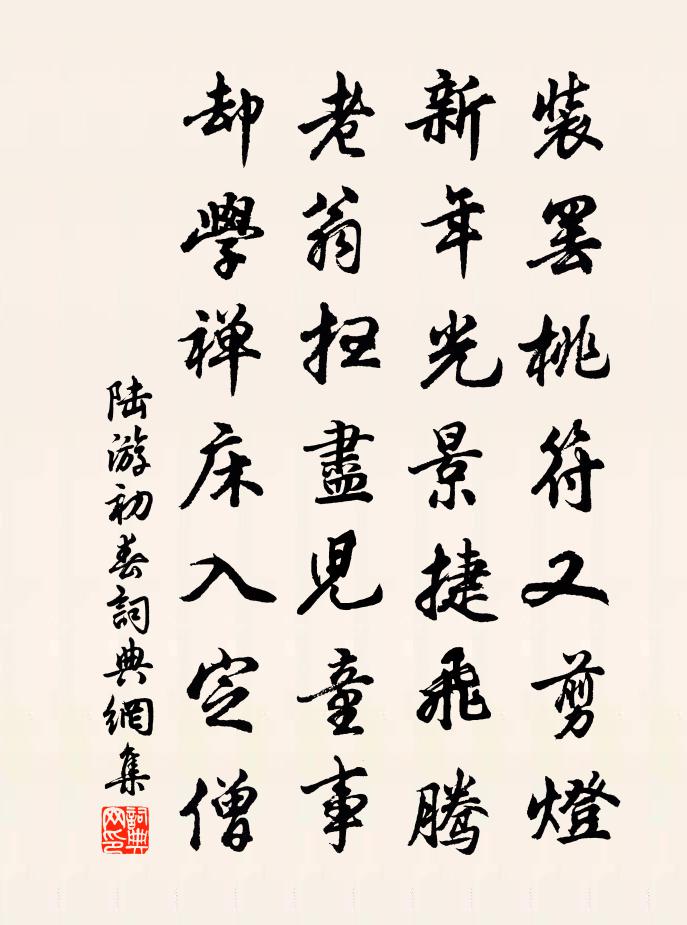 裝罷桃符又剪燈
新年光景捷飛騰
老翁掃盡兒童事
却學禅床入定僧
陸游初春詞典網集
詞典網印